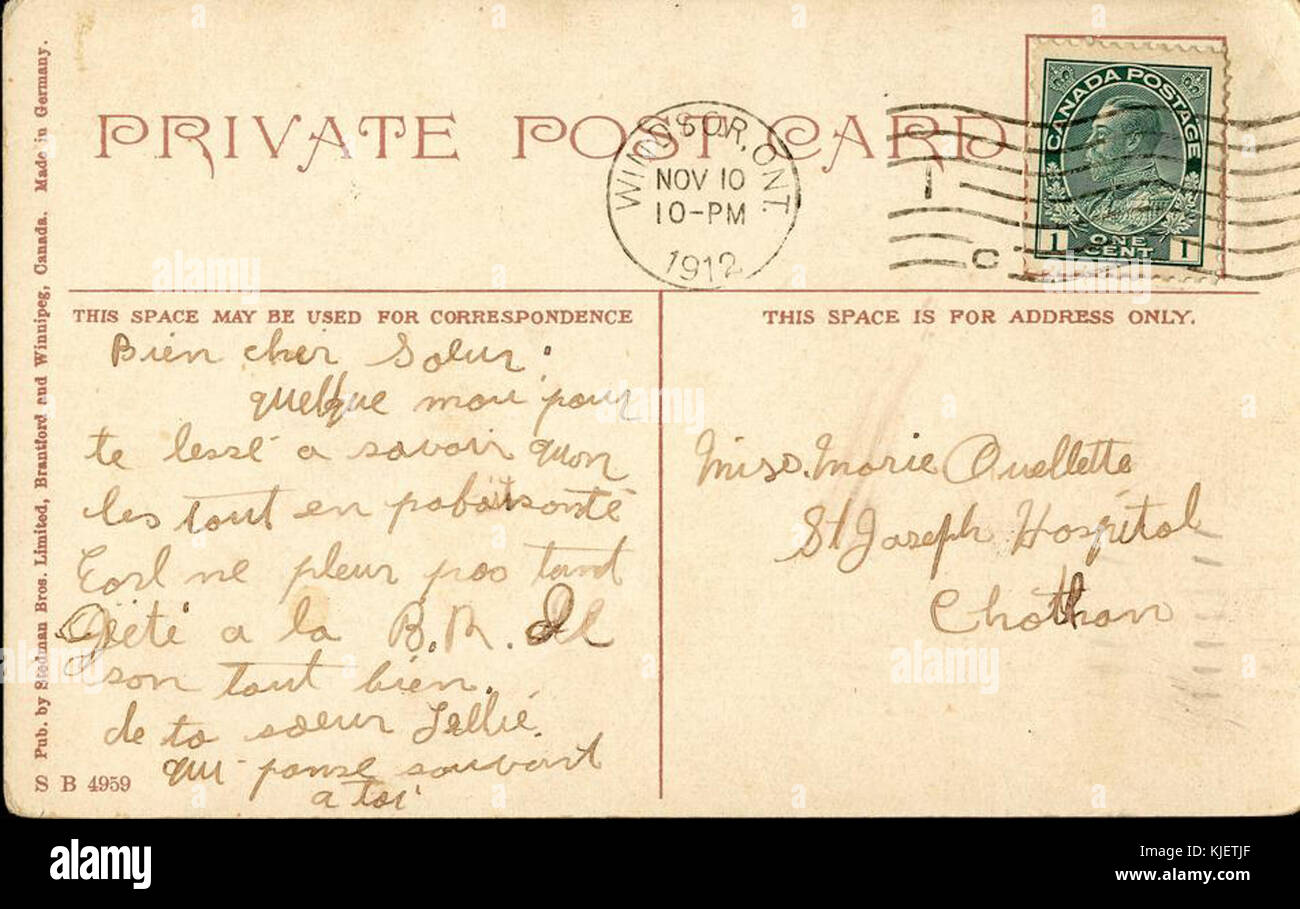 PRIVATE POST CARD
WINDSOR, ONT.
NOV 10
10-PM
1912
1
C
CANADA POSTAGE
1 ONE CENT 1
THIS SPACE MAY BE USED FOR CORRESPONDENCE
Bien cher Soeur:
quelque mou pour
te lessé a savoir quon
les tout en
Earl ne pleur pas tant
a la B.R.
son tout bien.
de ta soeur Lillie.
qui panse souvant
a toi
THIS SPACE IS FOR ADDRESS ONLY.
Miss. Marie Ouellette
St Joseph Hospital
Chatham
Pub. by Stedman Bros. Limited, Brantford and Winnipeg, Canada. Made in Germany.
S B 4959
alamy
a
a alamy stock photo
Image ID: KJETJF
www.alamy.com